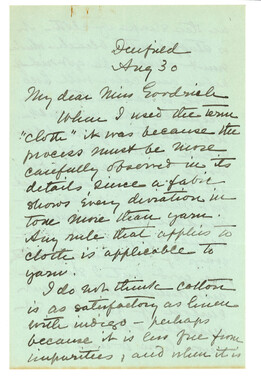 Deerfield
Aug 30
My dear Miss Goodrich
When I used the term
"cloth" it was because the
process must be more
carefully observed in its
details since a fabric
shows every deviation in
tone more than yarn.
Any rule that applies to
cloth is applicable to
yarn.
I do not think cotton
is as satisfactory as linen
with indigo – perhaps
because it is less free from
impurities, and when it is